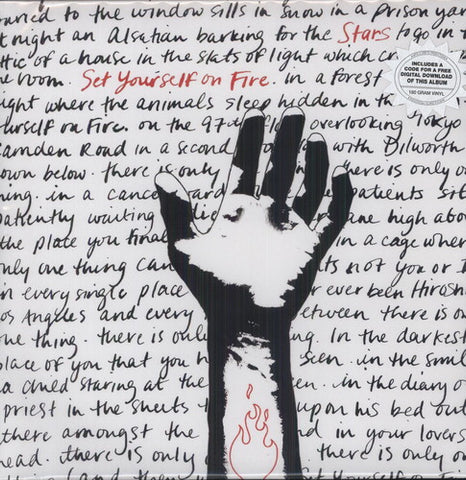 buried to the window sills in snow in a prison yar
t night an Alsatian barking for the Stars to go in t
ttic of a house in the slats of light which cr
he room. Set Yourself on Fire. in a forest
ight where the animals sleep hidden in th
urself on Fire. on the 97th fl overlooking Tokyo
Camden Road in a second with Dilworth
own below. there is only here is only o
hing. in a cance ard patients sit
patiently waiting die ane high abo
the place you final in a cage wher
only one thing can its not you or I
n every single place r ever been Hirosh
os Angeles and every between there is on
one thing. there is only ng. In the darkest
place of you that you h seen. in the smil
a child staring at the en. in the diary o
priest in the sheets upon his bed out
there amongst the nd in your lovers
head. there is only there is only o
Set Yourself on Fire
INCLUDES A
CODE FOR A FREE
DIGITAL DOWNLOAD
OF THIS ALBUM
180 GRAM VINYL